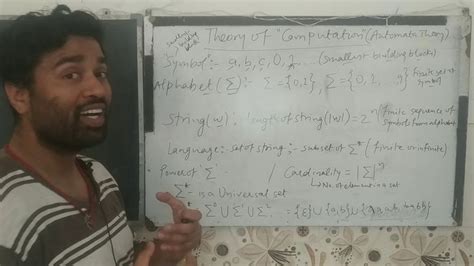 Smallest building block
Theory of "Computation (Automata Theory)
Symbol :- a, b, c, 0, 2, ... (Smallest building blocks)
Alphabet (Σ) :- Σ = {0, 2}, Σ = {0, 2, ... 9} finite set of symbols
String (w) : length of string (|w|) = 2 finite sequence of symbols from alphabet
Language :- set of string :- subset of Σ* (finite or infinite)
Power of Σ : / Cardinality = |Σ|ⁿ
No. of element in a set
Σ* is a Universal set
Σ⁰ ∪ Σ¹ ∪ Σ² = {ε} ∪ {a, b} ∪ {aa, ab, ba, bb}